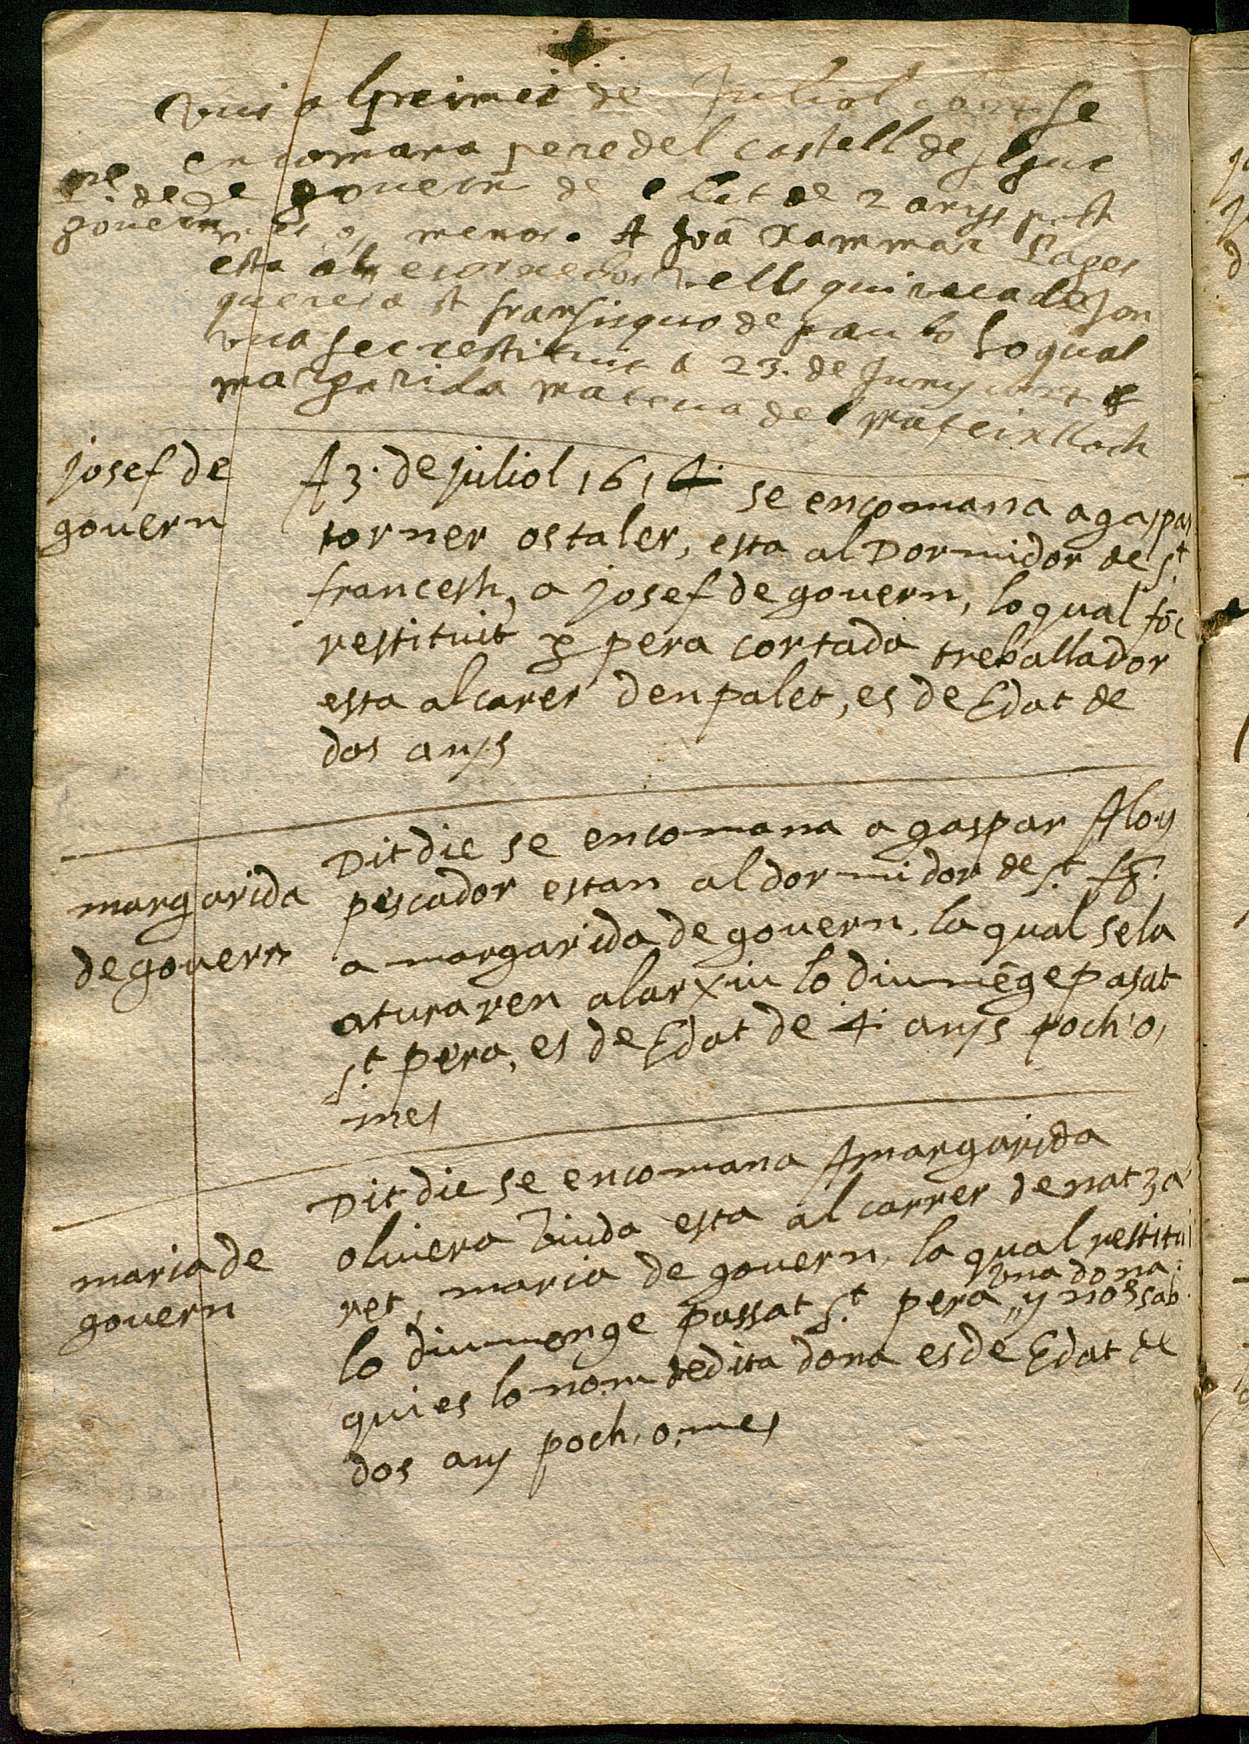 Vui al primer de Juliol corrt se
encomana pere del castell de
pere de de govern de edat de 2 anys poch
govern mes o, menos. A Joã Xammar Pages
esta al vell qui
st fransisquo de paulo lo qual
vua se restituit a 23. de Juny corrt
margarida
josef de
govern
A 3. de juliol 1614. se encomana a gaspar
torner ostaler, esta al Dormidor de st.
francesh, a josef de govern, lo qual fõc
restituit p pera cortada treballador
esta al carer den palet, es de Edat de
dos anys
margarida
de govern
Dit die se encomana a gaspar Aloy
pescador estan al dormidor de st. fᵃ.
a margarida de govern, la qual sela
aturaren alarxiu lo diumẽge pasat
st. pera, es de Edat de 4. anys poch, o,
mes
maria de
govern
Dit die se encomana A margarida
olivera viuda esta al carrer de natza
ret, maria de govern, la qual restitui
lo diumenge passat st. pera vna dona, y nos sab
qui es lo nom dedita dona es de Edat de
dos any poch, o, mes